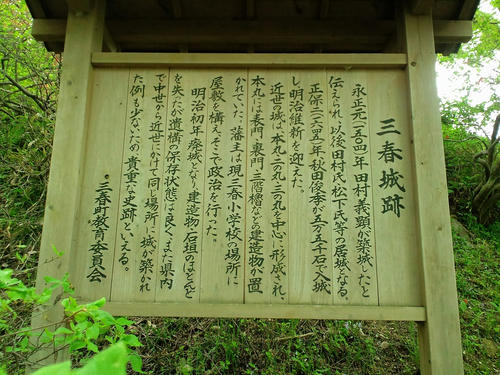 三春城跡
永正元(一五〇四)年 田村義顕が築城したと
伝えられ、以後田村氏、松下氏等の居城となる。
正保二(一六四五)年 秋田俊季が五万五千石で入城
し、明治維新を迎えた。
近世城は、本丸、二の丸、三の丸を中心に形成され、
本丸には表門、裏門、三階櫓などの建造物が置
かれていた。藩主は、現三春小学校の場所に
屋敷を構え、そこで政治を行った。
明治初年、廃城となり、建造物、石垣のほとんど
を失ったが、遺構の保存状態は良く、また県内
で中世から近世にかけて同一場所に城が築かれ
た例も少ないため、貴重な史跡といえる。
三春町教育委員会